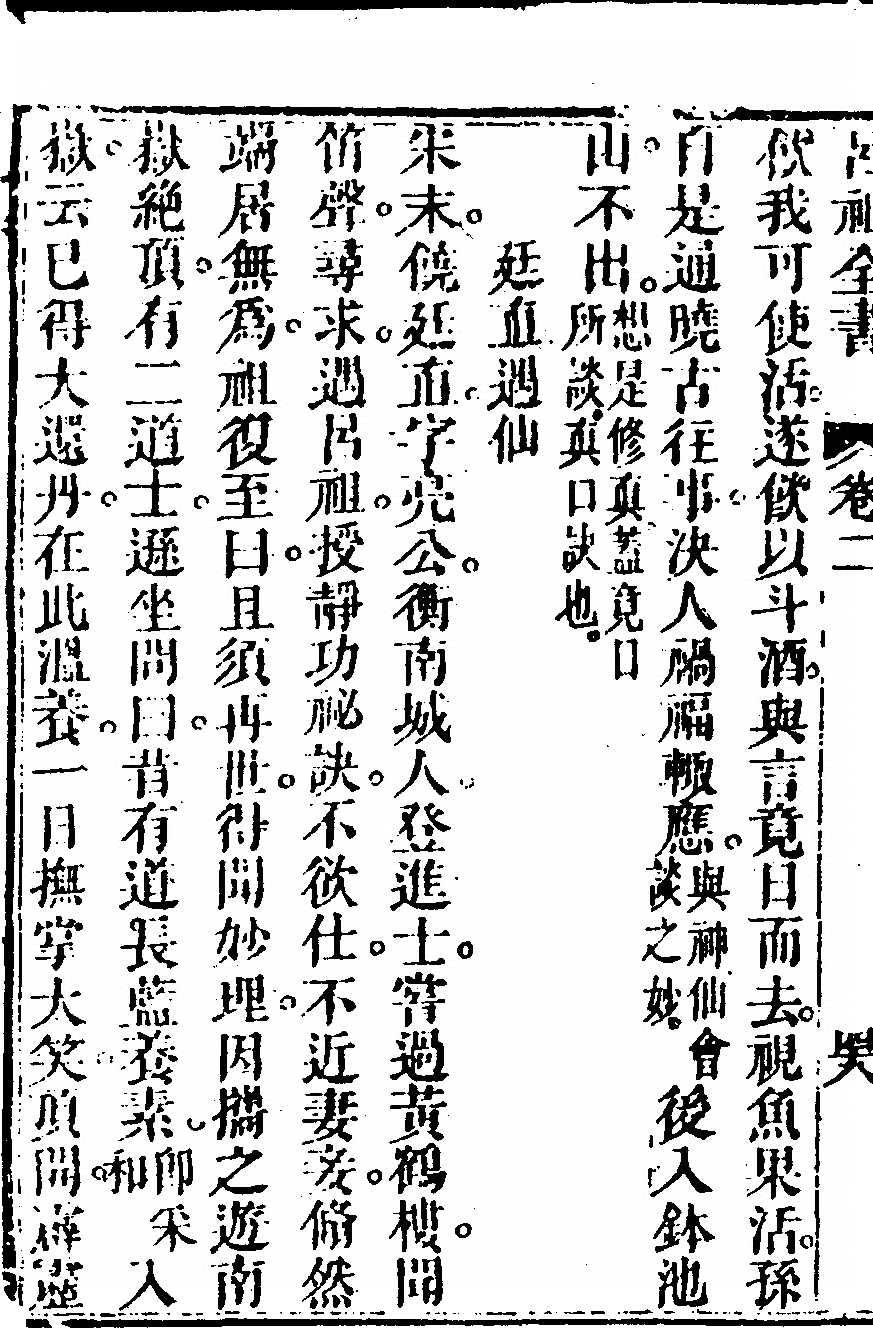 呂祖全書 卷二
飲我可使活。遂飲以斗酒。與言竟日而去。視魚果活。孫
自是通曉古往事。決人禍福輒應。與神仙會談之妙。後入鉢池
山。不出。想是修真蓋竟日所談。真口訣也。
廷直遇仙
宋末。饒廷直。字亮公。衡南城人。登進士。嘗過黃鶴樓。聞
笛聲。尋求。遇呂祖。授靜功祕訣。不欲仕。不近妻妾。翛然
端居無爲。祖復至曰。且須再世。得聞妙理。因攜之遊南
嶽絕頂。有二道士。遜坐問曰。昔有道長藍養素。即采和入
嶽。云已得大還丹。在此溫養。一日撫掌大笑。頂開。霹靂